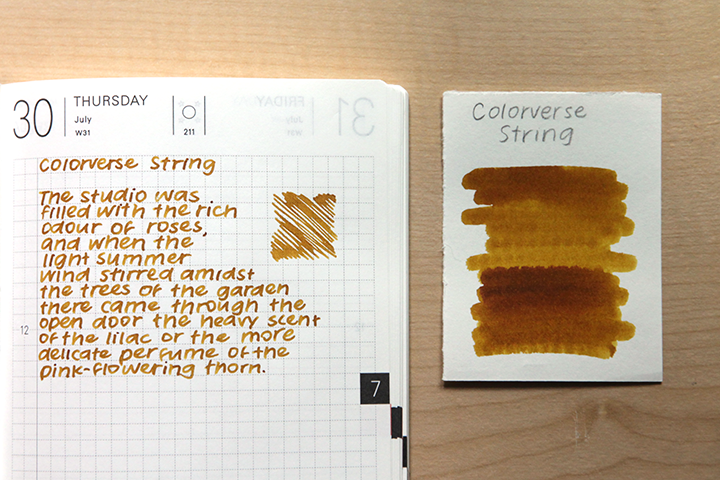 30 THURSDAY
July
W31
211
FRIDAY
31
W31
Colorverse String
The studio was
filled with the rich
odour of roses,
and when the
light summer
wind stirred amidst
the trees of the garden
there came through the
open door the heavy scent
of the lilac or the more
delicate perfume of the
pink-flowering thorn.
12
7
Colorverse
String